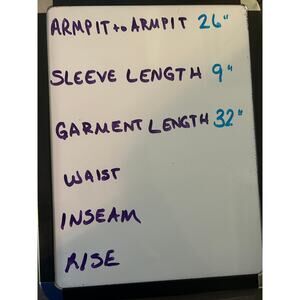 ARMPIT to ARMPIT 26"
SLEEVE LENGTH 9"
GARMENT LENGTH 32"
WAIST
INSEAM
RISE